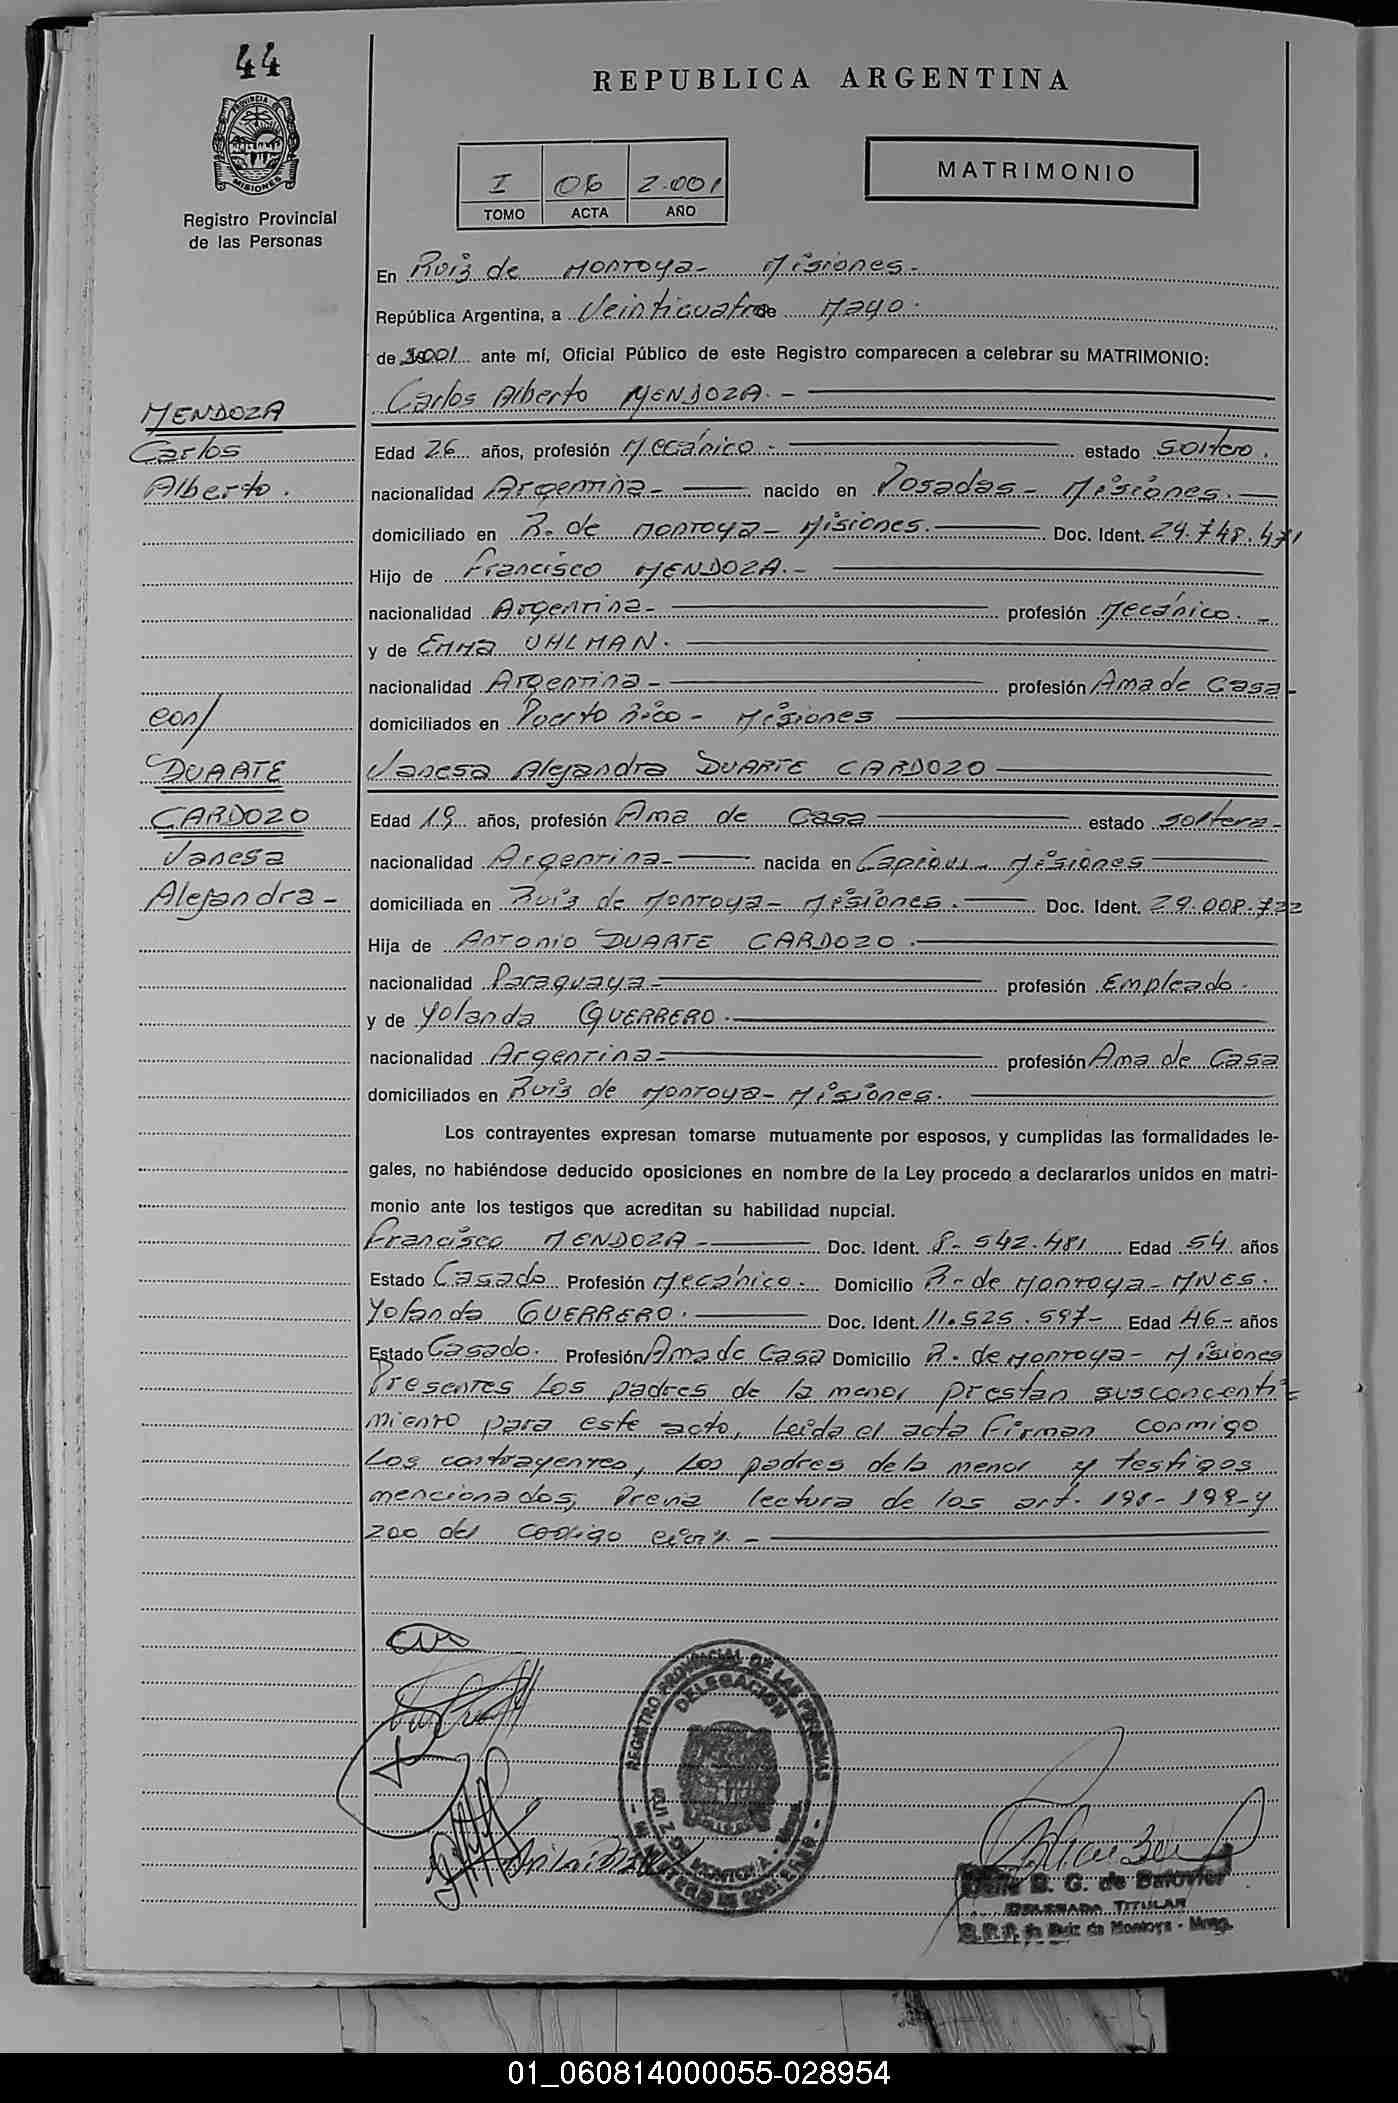 44
PROVINCIA DE
MISIONES
Registro Provincial
de las Personas
REPUBLICA ARGENTINA
I 06 2.001
TOMO ACTA AÑO
MATRIMONIO
En Ruiz de Montoya- Misiones.-
República Argentina, a Veinticuatro de Mayo.
de 2001 ante mí, Oficial Público de este Registro comparecen a celebrar su MATRIMONIO:
Carlos Alberto MENDOZA.-
MENDOZA
Carlos
Alberto.
Edad 26 años, profesión Mecánico.- estado soltero.
nacionalidad Argentina- nacido en Posadas- Misiones.-
domiciliado en R. de Montoya- Misiones.- Doc. Ident. 24.748.471
Hijo de Francisco MENDOZA.-
nacionalidad Argentina- profesión Mecánico.-
y de Emma UHLMAN.
nacionalidad Argentina- profesión Ama de Casa-
domiciliados en Puerto Rico- Misiones
con/
DUARTE
CARDOZO
Vanesa
Alejandra-
Vanesa Alejandra DUARTE CARDOZO
Edad 19 años, profesión Ama de Casa estado soltera-
nacionalidad Argentina- nacida en Capiovi- Misiones
domiciliada en Ruiz de Montoya- Misiones.- Doc. Ident. 29.008.722
Hija de Antonio DUARTE CARDOZO.
nacionalidad Paraguaya- profesión Empleado.
y de Yolanda GUERRERO.
nacionalidad Argentina- profesión Ama de Casa
domiciliados en Ruiz de Montoya- Misiones.
Los contrayentes expresan tomarse mutuamente por esposos, y cumplidas las formalidades le-
gales, no habiéndose deducido oposiciones en nombre de la Ley procedo a declararlos unidos en matri-
monio ante los testigos que acreditan su habilidad nupcial.
Francisco MENDOZA- Doc. Ident. 8.542.481 Edad 54 años
Estado Casado Profesión Mecánico. Domicilio R. de Montoya- MNES.
Yolanda GUERRERO. Doc. Ident. 11.525.597- Edad 46- años
Estado Casado. Profesión Ama de Casa Domicilio R. de Montoya- Misiones
Presentes los padres de la menor prestan sus concenti-
miento para este acto, Leida el acta Firman conmigo
Los contrayentes, Los padres de la menor y testigos
mencionados, Previa lectura de los art. 198- 199-y
200 del codigo civil-
REGISTRO PROVINCIAL DE LAS PERSONAS
DELEGACION
RUIZ DE MONTOYA
B. G. de
DELEGADA TITULAR
de Ruiz de Montoya - Mnes.
01_060814000055-028954